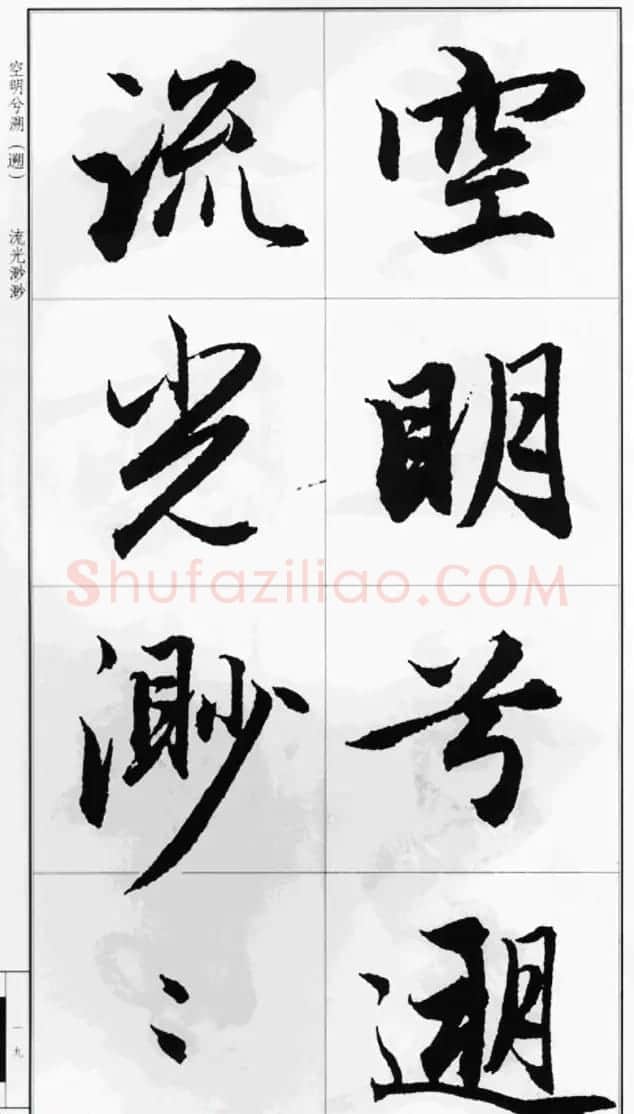 空明兮遡
流光渺〻
空明兮溯（遡） 流光渺渺
Shufaziliao.COM
一九